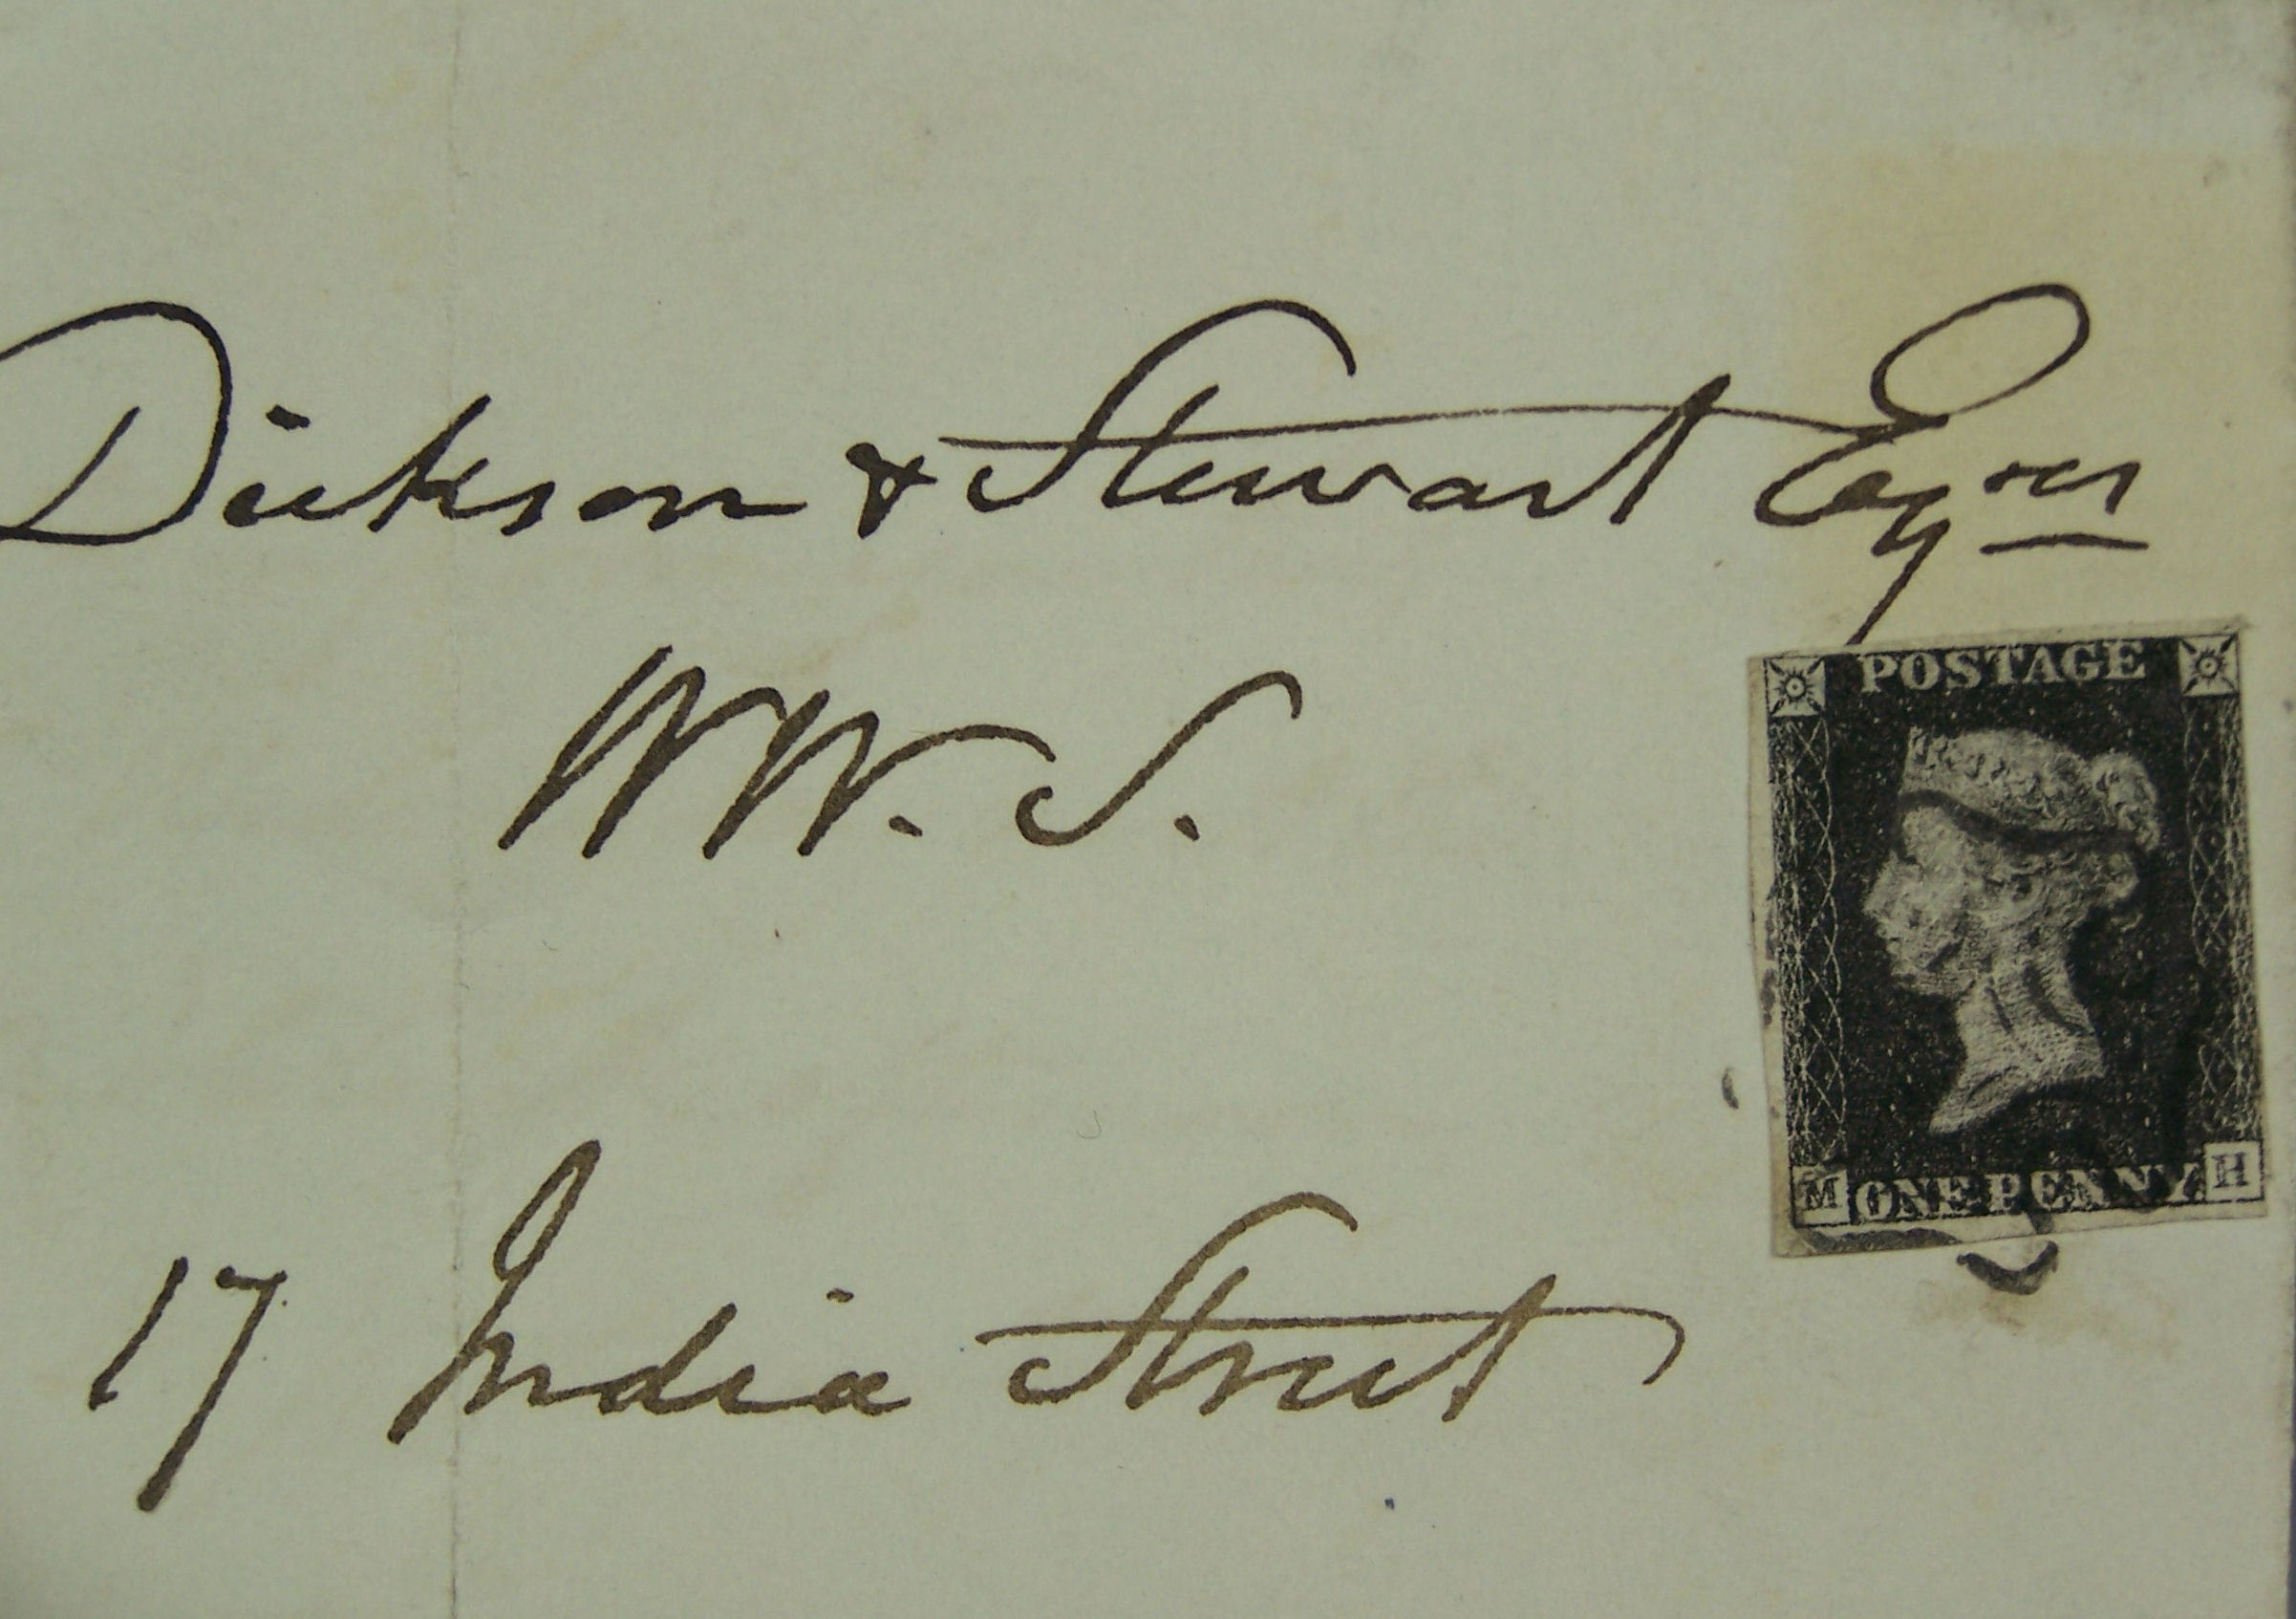 Dickson & Stewart Esqrs
WW. S.
17 India Street
POSTAGE
M ONE PENNY. H